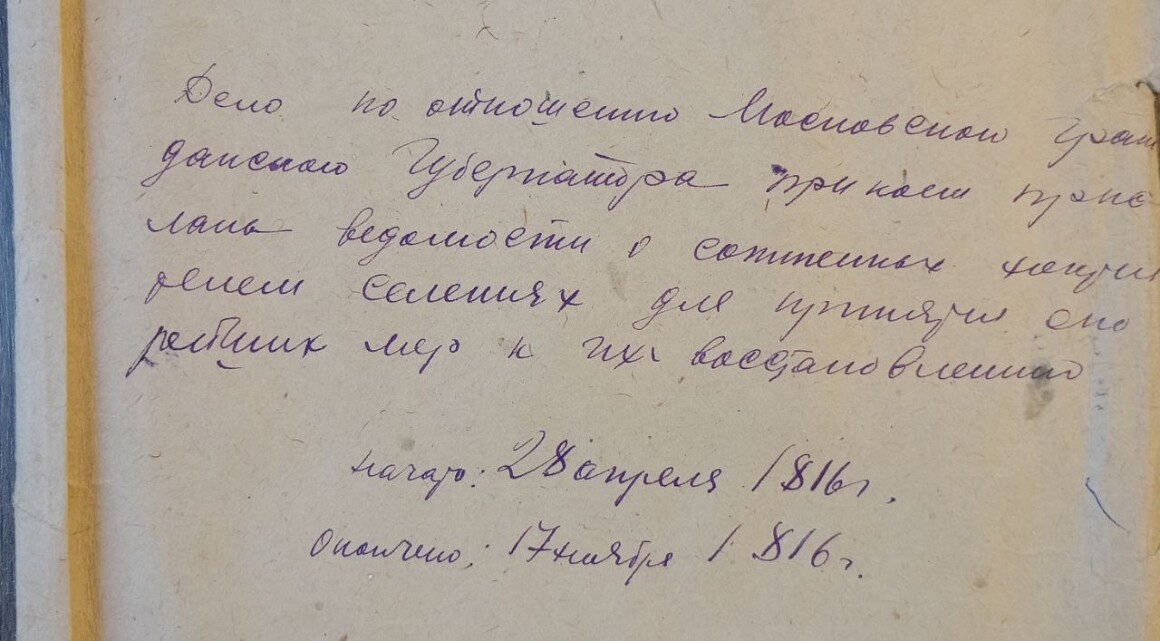 Дело по отношению Московского Граж
данского Губернатора при коем прис
лана ведомости о сожженных неприя
селениях для принятия ско
рейших мер к их восстановлению
начато: 28 апреля 1816 г.
Окончено: 17 ноября 1816 г.